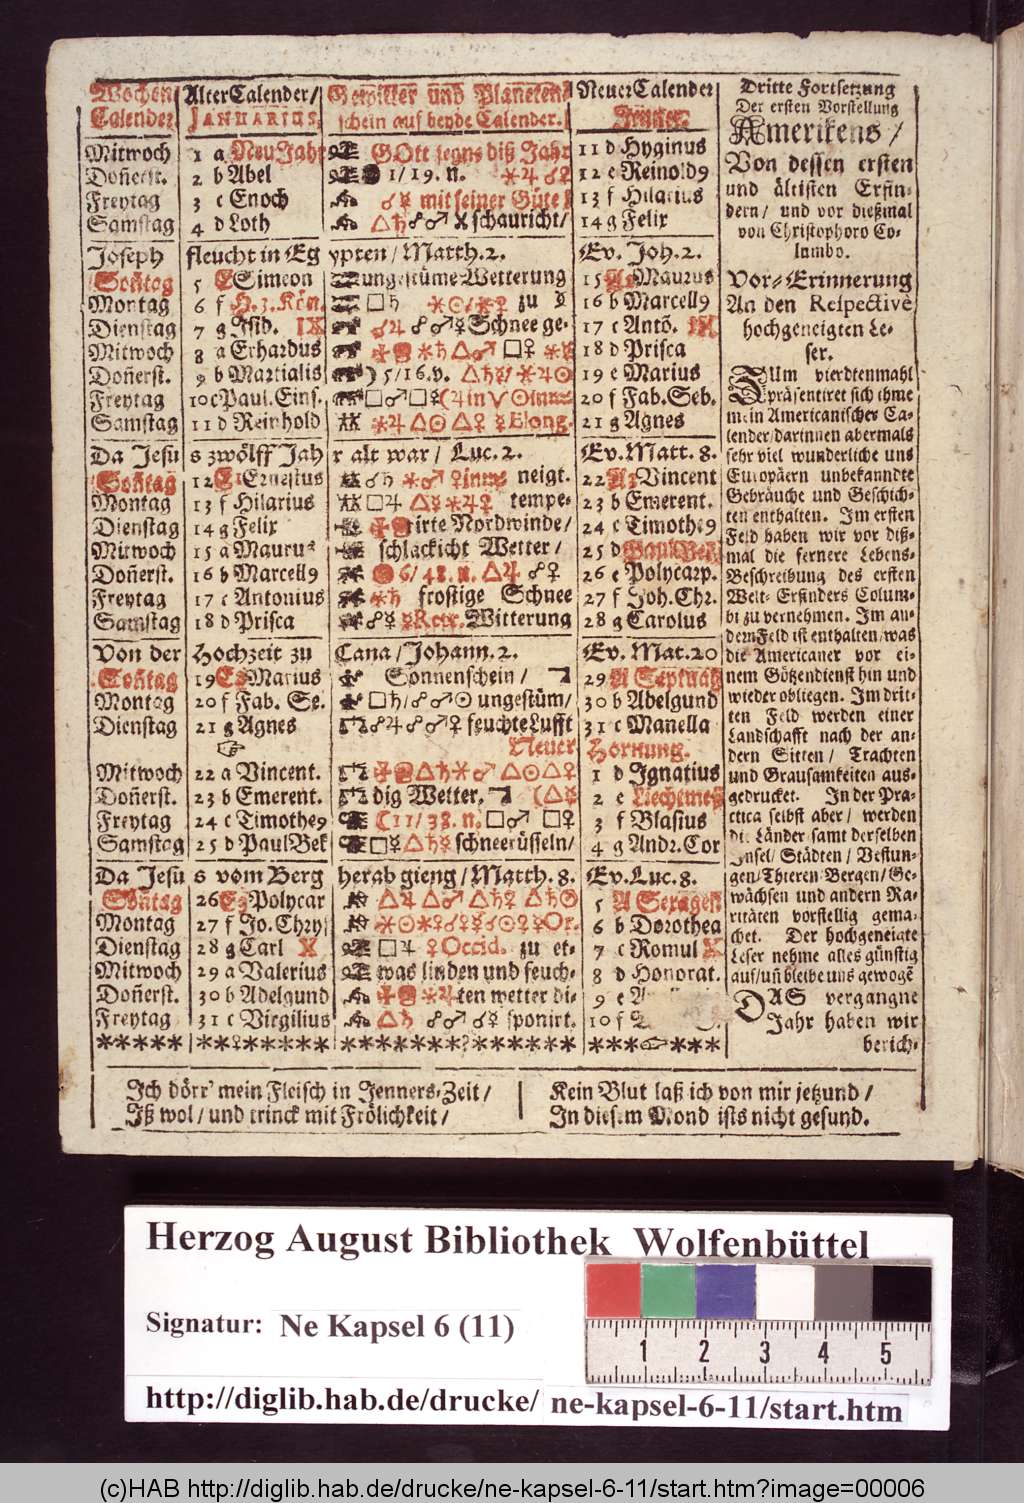 Wochen Calender Alter Calender/ JANUARIUS. Gewitter und Planeten schein auf beyde Calender. Neuer Calender Jenner.
Mitwoch 1 a Neu Jahr GOtt segne diß Jahr 11 d Hyginus
Doñerst. 2 b Abel 1/19. n. ⚹♃ ☌♀ 12 e Reinold9
Freytag 3 c Enoch ☌☿ mit seiner Güte! 13 f Hilarius
Samstag 4 d Loth △♄ ☍♂ schauricht/ 14 g Felix
Joseph fleucht in Egypten/ Matth. 2. Ev. Joh. 2.
Soñtag 5 Simeon ungestüme Wetterung 15 Maurus
Montag 6 f H. 3. Kön. □♄ ⚹☉/⚹♀ zu 16 b Marcell9
Dienstag 7 g Isid. IX ☌♃ ☍♂☿ Schnee ge- 17 c Antõ. IX
Mitwoch 8 a Erhardus ⚹♄ △♂ □♀ ⚹☿ 18 d Prisca
Doñerst. 9 b Martialis 5/16. v. △♄☿/⚹♃☉ 19 e Marius
Freytag 10 c Paul. Eins. □♂□☿ 20 f Fab. Seb.
Samstag 11 d Reinhold ⚹♃ △☉ △♀ ☿Elong. 21 g Agnes
Da Jesus zwölff Jahr alt war/ Luc. 2. Ev. Matt. 8.
Soñtag 12 Ernestus ☌♄ ⚹♂ neigt. 22 Vincent
Montag 13 f Hilarius □♃ △☿⚹♃♀ tempe- 23 b Emerent.
Dienstag 14 g Felix rirte Nordwinde/ 24 c Timothe9
Mitwoch 15 a Maurus schlackicht Wetter/ 25 d Paul Bek.
Doñerst. 16 b Marcell9 6/48. n. △♃ ☍♀ 26 e Polycarp.
Freytag 17 c Antonius ⚹♄ frostige Schnee 27 f Joh. Chr.
Samstag 18 d Prisca ☍♀☿ ☿Retr. Witterung 28 g Carolus
Von der Hochzeit zu Cana/ Johann. 2. Ev. Mat. 20
Soñtag 19 Marius Sonnenschein/ 29 A Septuag
Montag 20 f Fab. Se. □♄/☍♂☉ ungestüm/ 30 b Adelgund
Dienstag 21 g Agnes ☍♃ ☍♂☿ feuchte Lufft 31 c Manella
☞ Neuer Hornung.
Mitwoch 22 a Vincent. △♄⚹♂ △☉△♀ 1 d Ignatius
Doñerst. 23 b Emerent. dig Wetter. (△☿ 2 e Liechtmeß
Freytag 24 c Timothe9 11/38. n. □♂ □♀ 3 f Blasius
Samstag 25 d Paul Bek □☿ △♄☿ schneerüsseln/ 4 g Andr. Cor
Da Jesus vom Berg herab gieng/ Matth. 8. Ev. Luc. 8.
Soñtag 26 Polycar △♃ △♂ △♄♀ △♄☉ 5 A Sexages
Montag 27 f Jo. Chrys ⚹☉⚹♀ Or. 6 b Dorothea
Dienstag 28 g Carl X □♃ ♀Occid. zu et- 7 c Romul X
Mitwoch 29 a Valerius was linden und feuch- 8 d Honorat.
Doñerst. 30 b Adelgund ⚹♃ ten wetter di- 9 e
Freytag 31 c Virgilius △♄ ☍♂ ☌☿ sponirt. 10 f
Dritte Fortsetzung
Der ersten Vorstellung
Amerikens/
Von dessen ersten
und ältisten Erfin-
dern/ und vor dießmal
von Christophoro Co-
lumbo.
Vor-Erinnerung
An den Respectivè
hochgeneigten Le-
ser.
ZUm vierdtenmahl
præsentiret sich ihme
mein Americanischer Ca-
lender/ darinnen abermals
sehr viel wunderliche uns
Europäern unbekanndte
Gebräuche und Geschich-
ten enthalten. Im ersten
Feld haben wir vor diß-
mal die fernere Lebens-
Beschreibung des ersten
Welt-Erfinders Colum-
bi zu vernehmen. Im an-
dern Feld ist enthalten/ was
die Americaner vor ei-
nem Götzendienst hin und
wieder obliegen. Im drit-
ten Feld werden einer
Landschafft nach der an-
dern Sitten/ Trachten
und Grausamkeiten aus-
gedrucket. In der Pra-
ctica selbst aber/ werden
die Länder samt derselben
Insel/ Städten/ Vestun-
gen/ Thieren/ Bergen/ Ge-
wächsen und andern Ra-
ritäten vorstellig gema-
chet. Der hochgeneigte
Leser nehme alles günstig
auf/ uñ bleibe uns gewogẽ
DAS vergangne
Jahr haben wir
berich-
Ich dörr' mein Fleisch in Jenners-Zeit/
Iß wol/ und trinck mit Frölichkeit/
Kein Blut laß ich von mir jetzund/
In diesem Mond ists nicht gesund.
Herzog August Bibliothek Wolfenbüttel
Signatur: Ne Kapsel 6 (11)
1 2 3 4 5
http://diglib.hab.de/drucke/ ne-kapsel-6-11/start.htm
(c)HAB http://diglib.hab.de/drucke/ne-kapsel-6-11/start.htm?image=00006